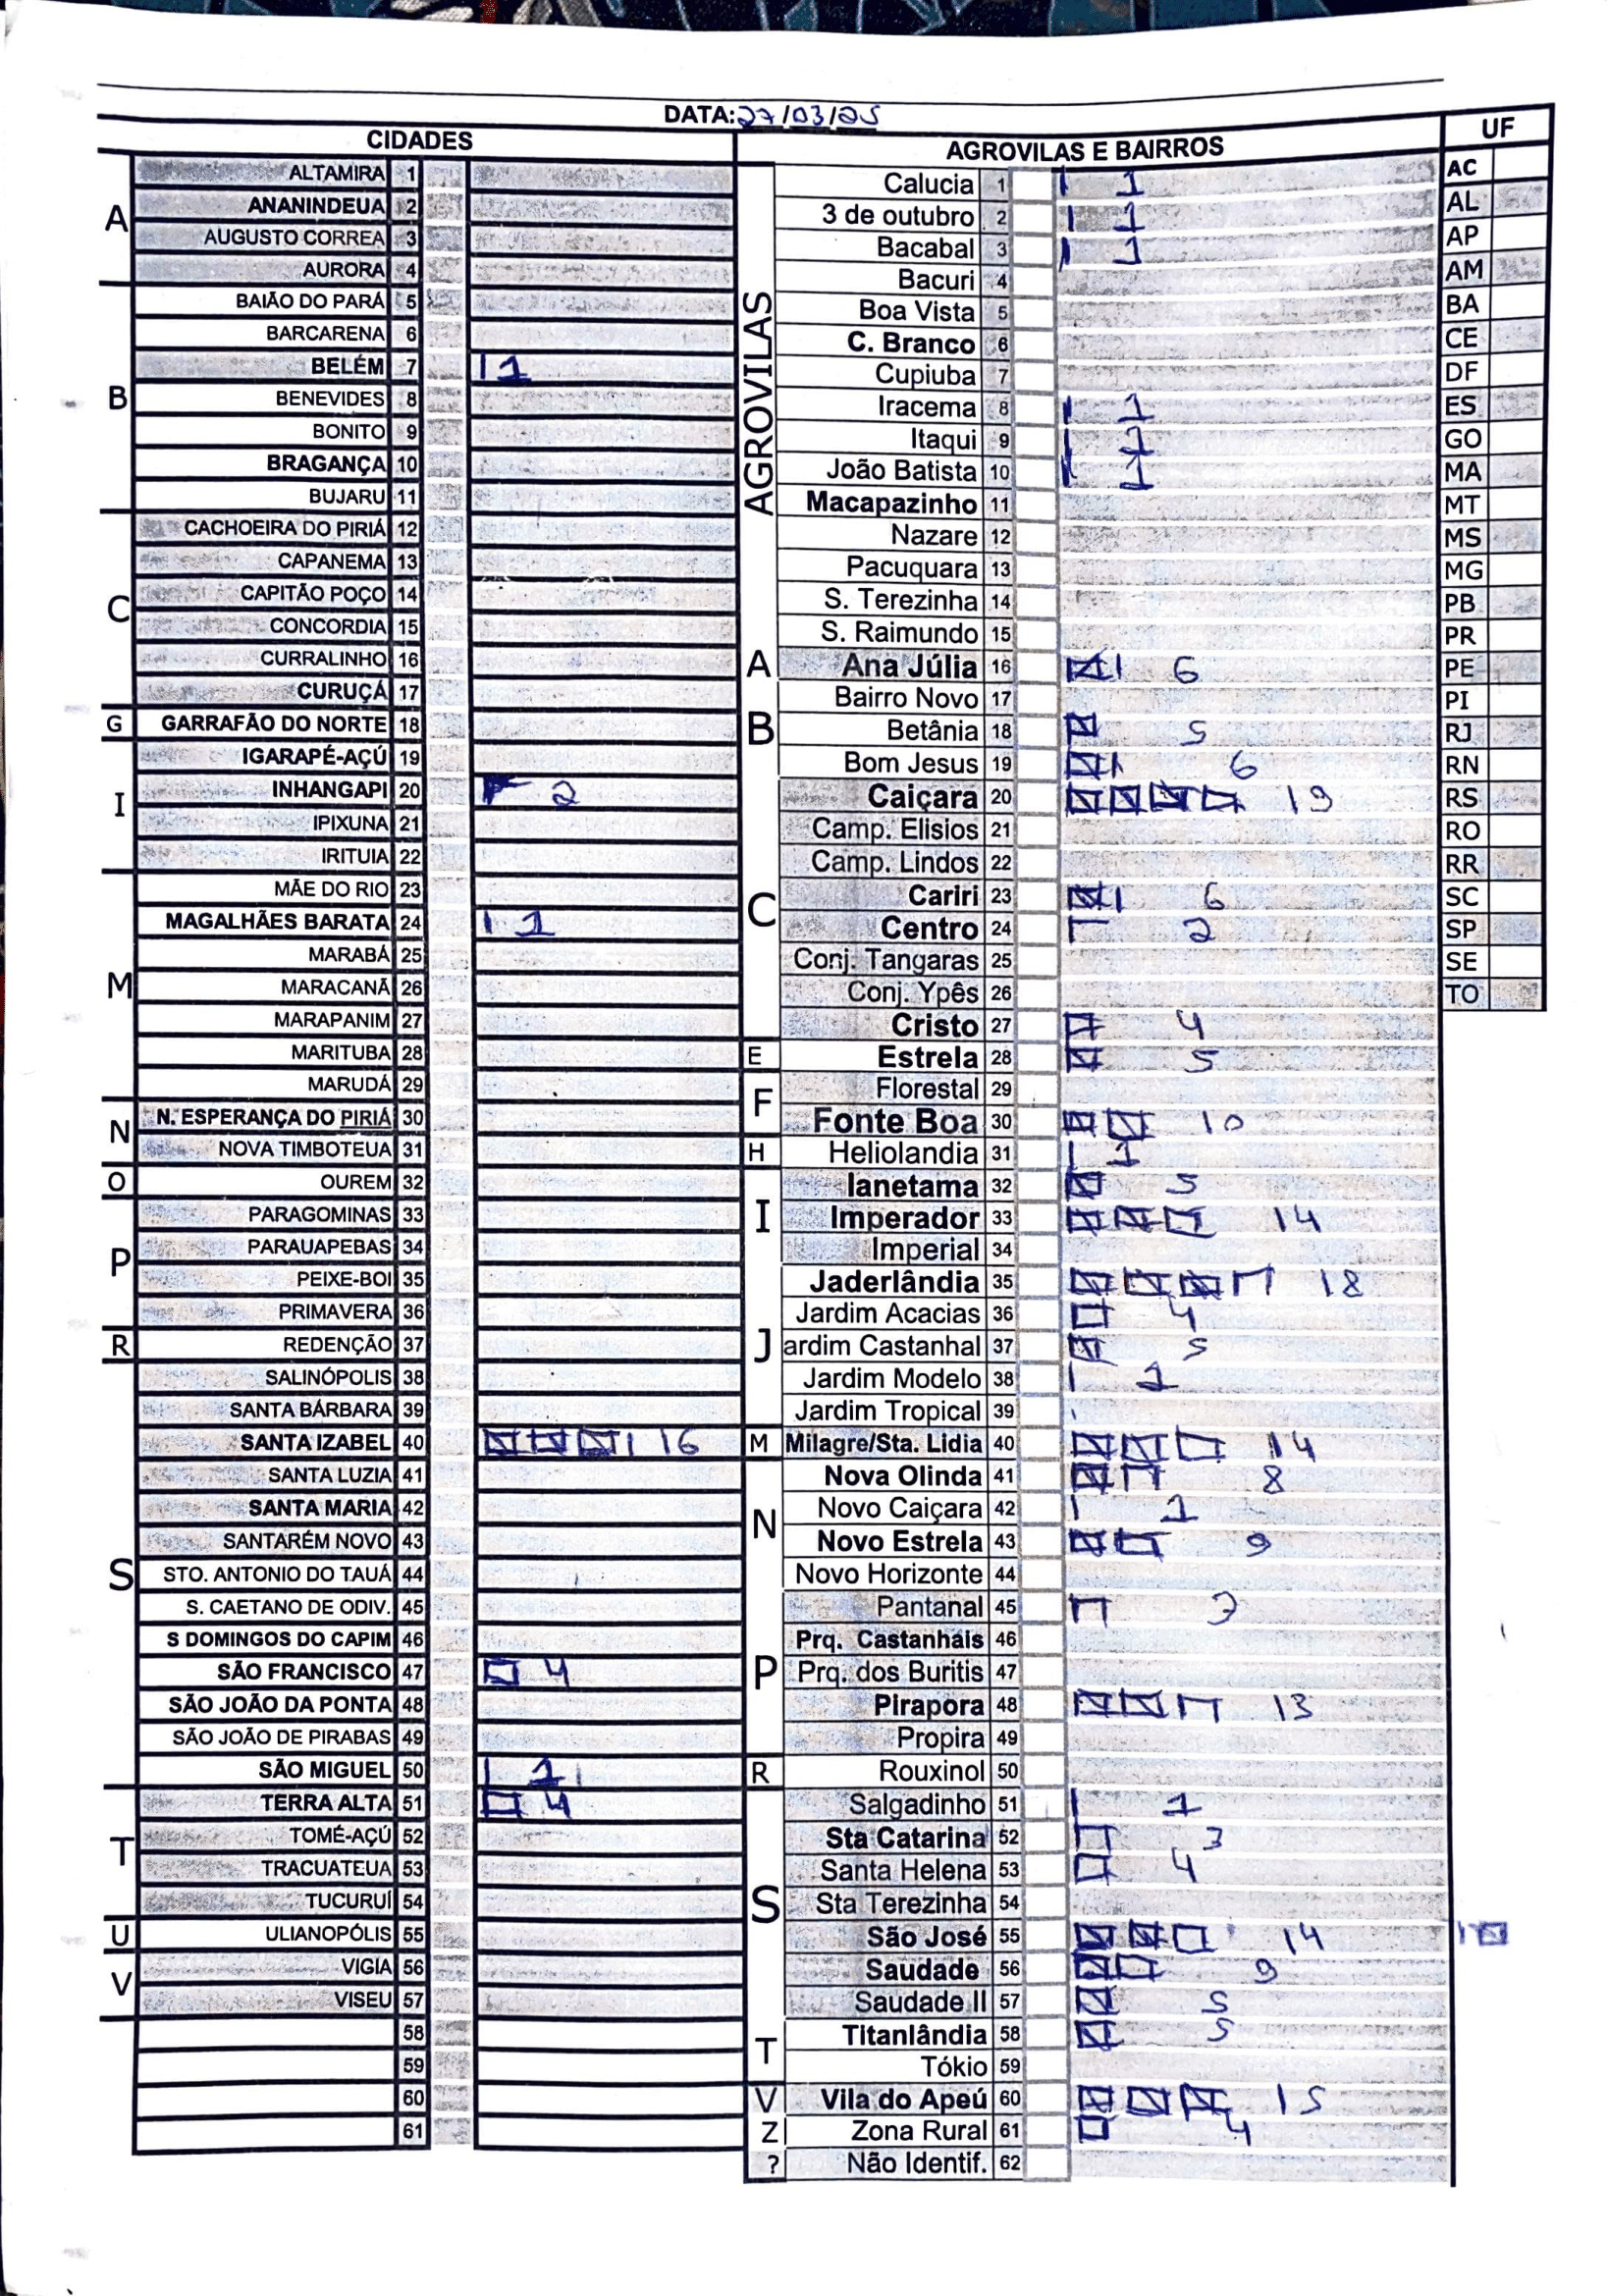 DATA:27/03/25
CIDADES
A
ALTAMIRA 1
ANANINDEUA 2
AUGUSTO CORREA 3
AURORA 4
B
BAIÃO DO PARÁ 5
BARCARENA 6
BELÉM 7 1
BENEVIDES 8
BONITO 9
BRAGANÇA 10
BUJARU 11
C
CACHOEIRA DO PIRIÁ 12
CAPANEMA 13
CAPITÃO POÇO 14
CONCORDIA 15
CURRALINHO 16
CURUÇÁ 17
G
GARRAFÃO DO NORTE 18
I
IGARAPÉ-AÇÚ 19
INHANGAPI 20 2
IPIXUNA 21
IRITUIA 22
M
MÃE DO RIO 23
MAGALHÃES BARATA 24 1
MARABÁ 25
MARACANÃ 26
MARAPANIM 27
MARITUBA 28
MARUDÁ 29
N
N. ESPERANÇA DO PIRIÁ 30
NOVA TIMBOTEUA 31
O
OUREM 32
P
PARAGOMINAS 33
PARAUAPEBAS 34
PEIXE-BOI 35
PRIMAVERA 36
R
REDENÇÃO 37
S
SALINÓPOLIS 38
SANTA BÁRBARA 39
SANTA IZABEL 40 16
SANTA LUZIA 41
SANTA MARIA 42
SANTARÉM NOVO 43
STO. ANTONIO DO TAUÁ 44
S. CAETANO DE ODIV. 45
S DOMINGOS DO CAPIM 46
SÃO FRANCISCO 47 4
SÃO JOÃO DA PONTA 48
SÃO JOÃO DE PIRABAS 49
SÃO MIGUEL 50 1
T
TERRA ALTA 51 4
TOMÉ-AÇÚ 52
TRACUATEUA 53
TUCURUÍ 54
U
ULIANOPÓLIS 55
V
VIGIA 56
VISEU 57
58
59
60
61
AGROVILAS E BAIRROS
AGROVILAS
Calucia 1 1
3 de outubro 2 1
Bacabal 3 1
Bacuri 4
Boa Vista 5
C. Branco 6
Cupiuba 7
Iracema 8 1
Itaqui 9 1
João Batista 10 1
Macapazinho 11
Nazare 12
Pacuquara 13
S. Terezinha 14
S. Raimundo 15
A
Ana Júlia 16 6
B
Bairro Novo 17
Betânia 18 5
Bom Jesus 19 6
C
Caiçara 20 19
Camp. Elisios 21
Camp. Lindos 22
Cariri 23 6
Centro 24 2
Conj. Tangaras 25
Conj. Ypês 26
Cristo 27 4
E
Estrela 28 5
F
Florestal 29
Fonte Boa 30 10
H
Heliolandia 31 1
I
Ianetama 32 5
Imperador 33 14
Imperial 34
J
Jaderlândia 35 18
Jardim Acacias 36 4
ardim Castanhal 37 5
Jardim Modelo 38 1
Jardim Tropical 39
M
Milagre/Sta. Lidia 40 14
N
Nova Olinda 41 8
Novo Caiçara 42 1
Novo Estrela 43 9
Novo Horizonte 44
P
Pantanal 45 3
Prq. Castanhais 46
Prq. dos Buritis 47
Pirapora 48 13
Propira 49
R
Rouxinol 50
S
Salgadinho 51 1
Sta Catarina 52 3
Santa Helena 53 4
Sta Terezinha 54
São José 55 14
Saudade 56 9
Saudade II 57 5
T
Titanlândia 58 5
Tókio 59
V
Vila do Apeú 60 15
Z
Zona Rural 61 4
?
Não Identif. 62
UF
AC
AL
AP
AM
BA
CE
DF
ES
GO
MA
MT
MS
MG
PB
PR
PE
PI
RJ
RN
RS
RO
RR
SC
SP
SE
TO